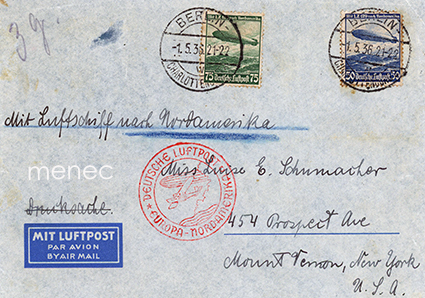 3 g.
BERLIN-
-1.5.36.21-22
CHARLOTTENBURG
75 Deutsche Luftpost 75
BERLIN-
-1.5.36.21-22
50 Deutsche Luftpost 50
Mit Luftschiff nach Nordamerika
menec
DEUTSCHE LUFTPOST
EUROPA-NORDAMERIKA
Miss Luise E. Schumacher
Drucksache.
454 Prospect Ave
MIT LUFTPOST
PAR AVION
BY AIR MAIL
Mount Vernon, New York
U.S.A.